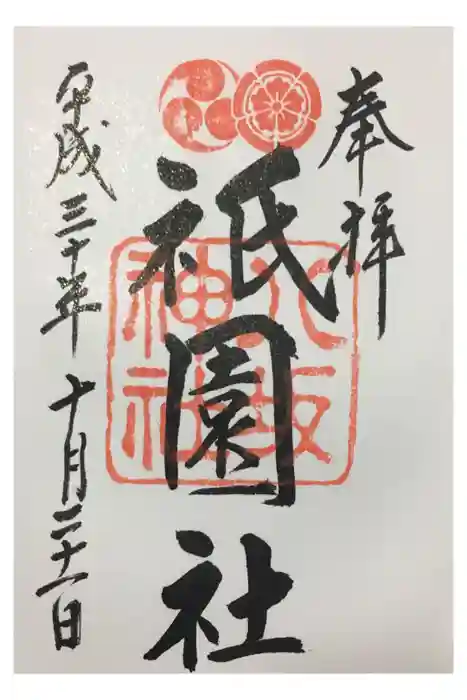 奉拝
祇園社
八坂神社
平成三十年十月二十一日